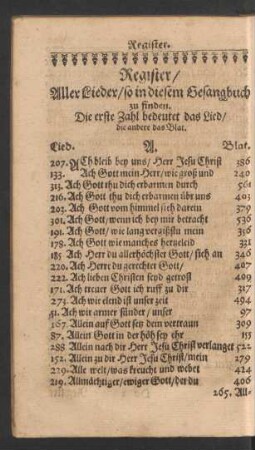 Register.
Register/
Aller Lieder/ so in diesem Gesangbuch
zu finden.
Die erste Zahl bedeutet das Lied/
die andere das Blat.
Lied. A. Blat.
207. Ach bleib bey uns/ Herr Jesu Christ 386
133. Ach Gott mein Herr/ wie groß und 240
313. Ach Gott thu dich erbarmen durch 561
216. Ach Gott thu dich erbarmen übr uns 403
203. Ach Gott vom himmel sich darein 379
301. Ach Gott/ wenn ich bey mir betracht 536
191. Ach Gott/ wie lang vergissestu mein 356
178. Ach Gott wie manches hertzeleid 331
185 Ach Herr du allerhöchster Gott/ sich an 346
220. Ach Herre du gerechter Gott/ 407
222. Ach lieben Christen seyd getrost 409
171. Ach treuer Gott ich ruff zu dir 317
273. Ach wie elend ist unser zeit 494
51. Ach wir armer sünder/ unser 97
167. Allein auf Gott setz dein vertraun 309
87. Allein Gott in der höh sey ehr 153
288 Allein nach dir Herr Jesu Christ verlanget 522
152. Allein zu dir Herr Jesu Christ/ mein 279
229. Alle welt/ was kreucht und webet 424
219. Allmächtiger/ ewiger Gott/ der du 406
265. All-